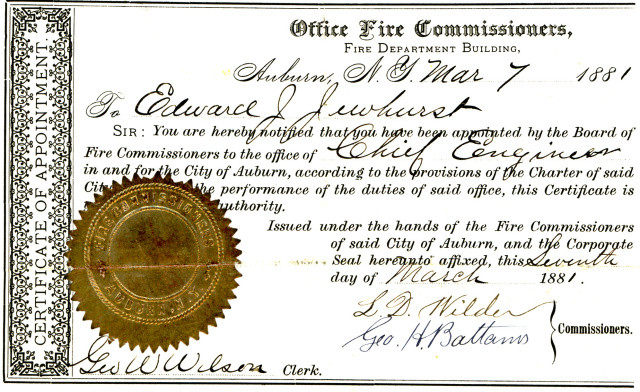 CERTIFICATE OF APPOINTMENT.
Office Fire Commissioners,
FIRE DEPARTMENT BUILDING,
Auburn, N.Y. Mar 7 1881
To Edward J. Jewhurst
SIR: You are hereby notified that you have been appointed by the Board of
Fire Commissioners to the office of Chief Engineer
in and for the City of Auburn, according to the provisions of the Charter of said
the performance of the duties of said office, this Certificate is
authority.
Issued under the hands of the Fire Commissioners
of said City of Auburn, and the Corporate
Seal hereunto affixed, this Seventh
day of March 1881.
L. D. Wilder
Geo. H. Battams
Commissioners.
FIRE COMMISSIONERS
AUBURN N.Y.
Geo W Wilson Clerk.